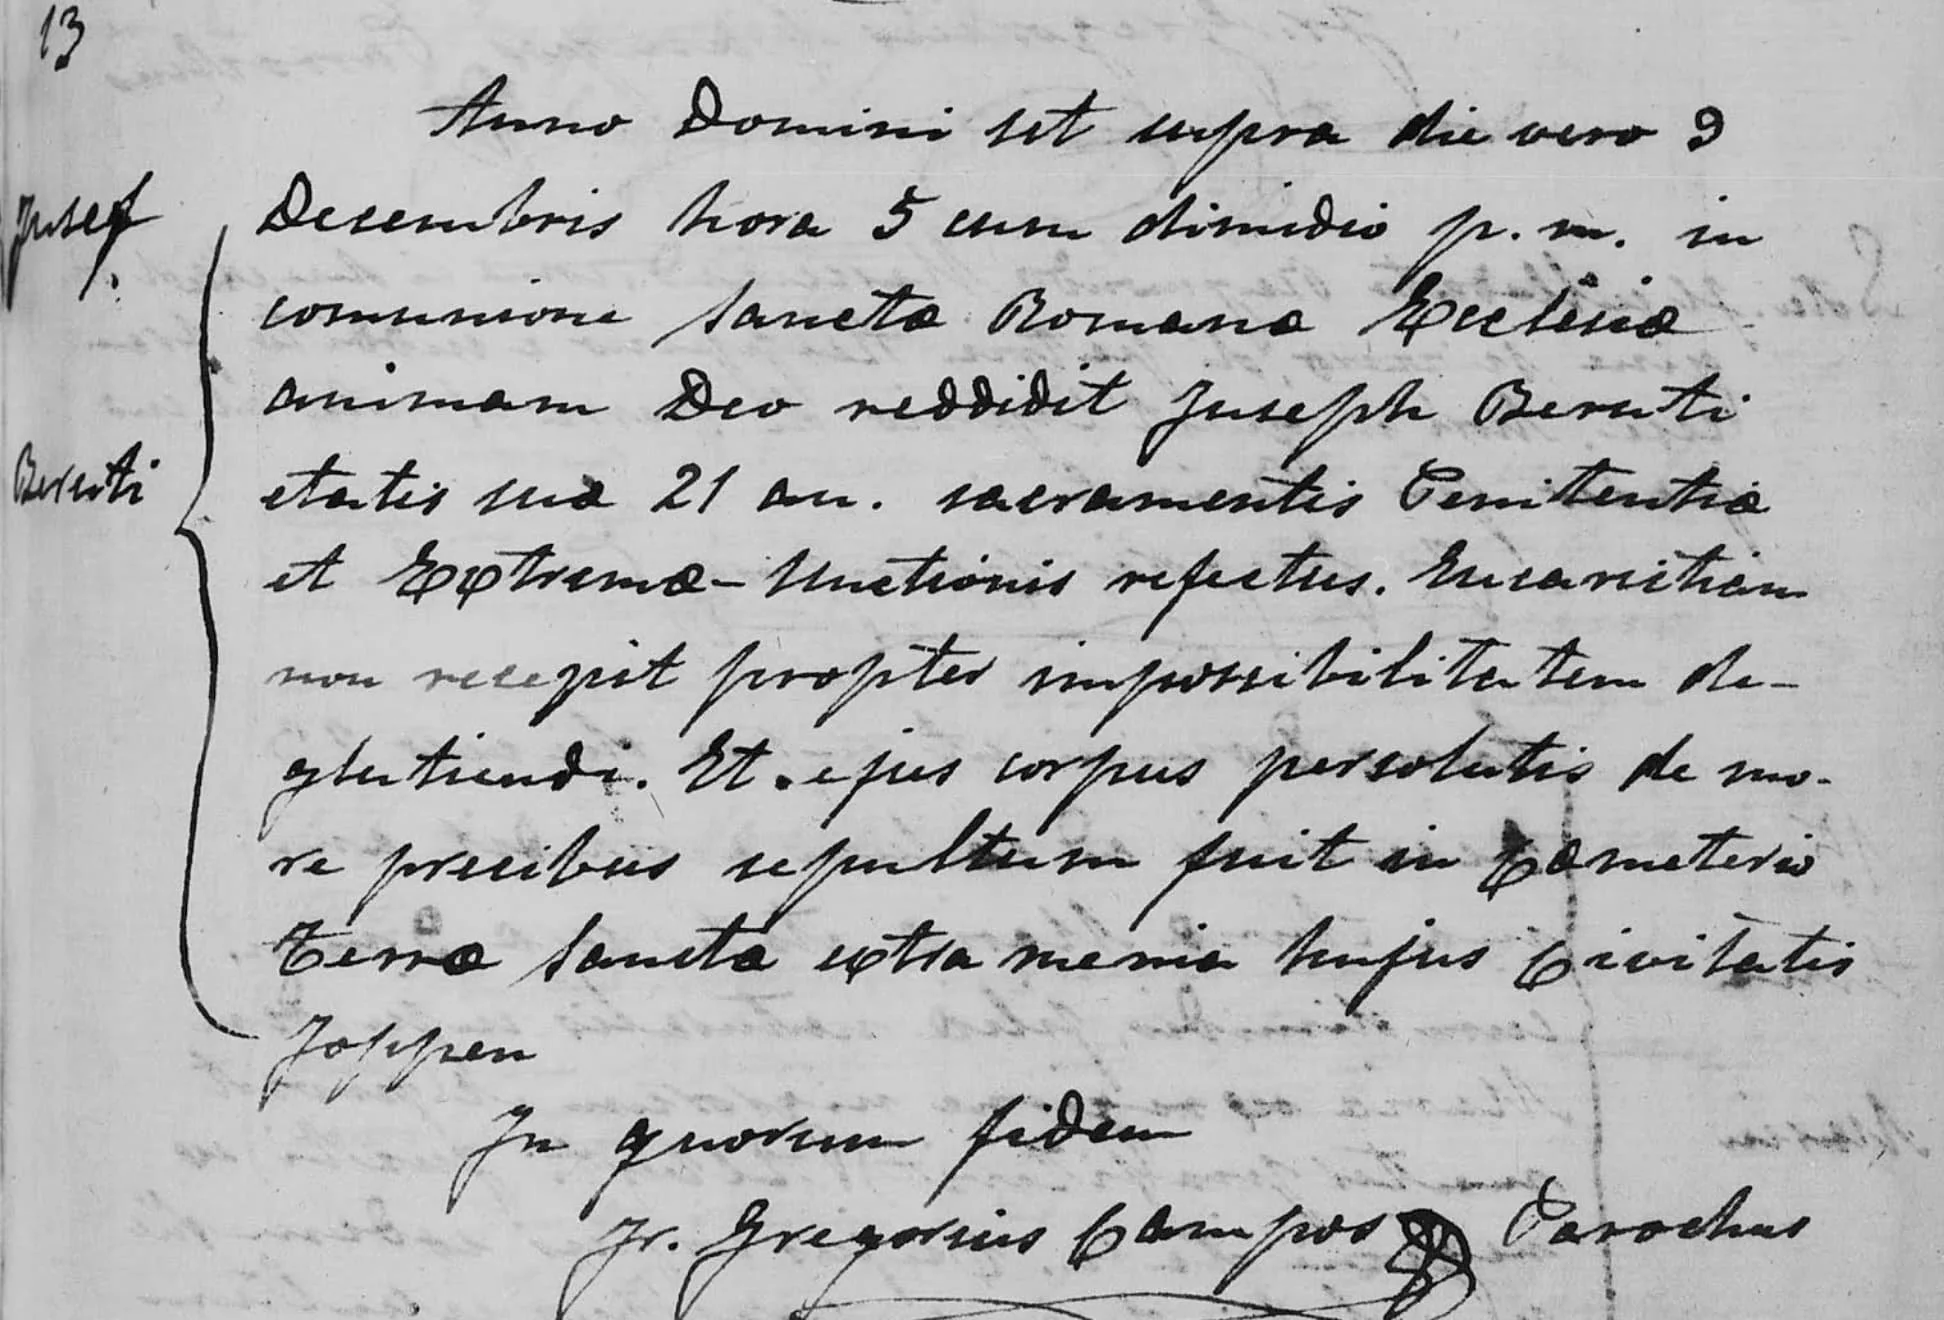 13
Anno Domini ut supra die vero 9
Jusef
Decembris hora 5 cum dimidio p. m. in
comunione Sanctæ Romanæ Ecclesiæ
animam Deo reddidit Juseph Beruti
Beruti
etatis suæ 21 an. sacramentis Penitentiæ
et Extremæ-Unctionis refectus. Eucaristiam
non recepit propter impossibilitatem de-
glutiendi. Et ejus corpus persolutis de mo-
re precibus sepultum fuit in Cæmeterio
Terræ Sanctæ extra menia hujus Civitatis
Joppen
In quorum fidem
Fr. Gregorius Campos Parochus